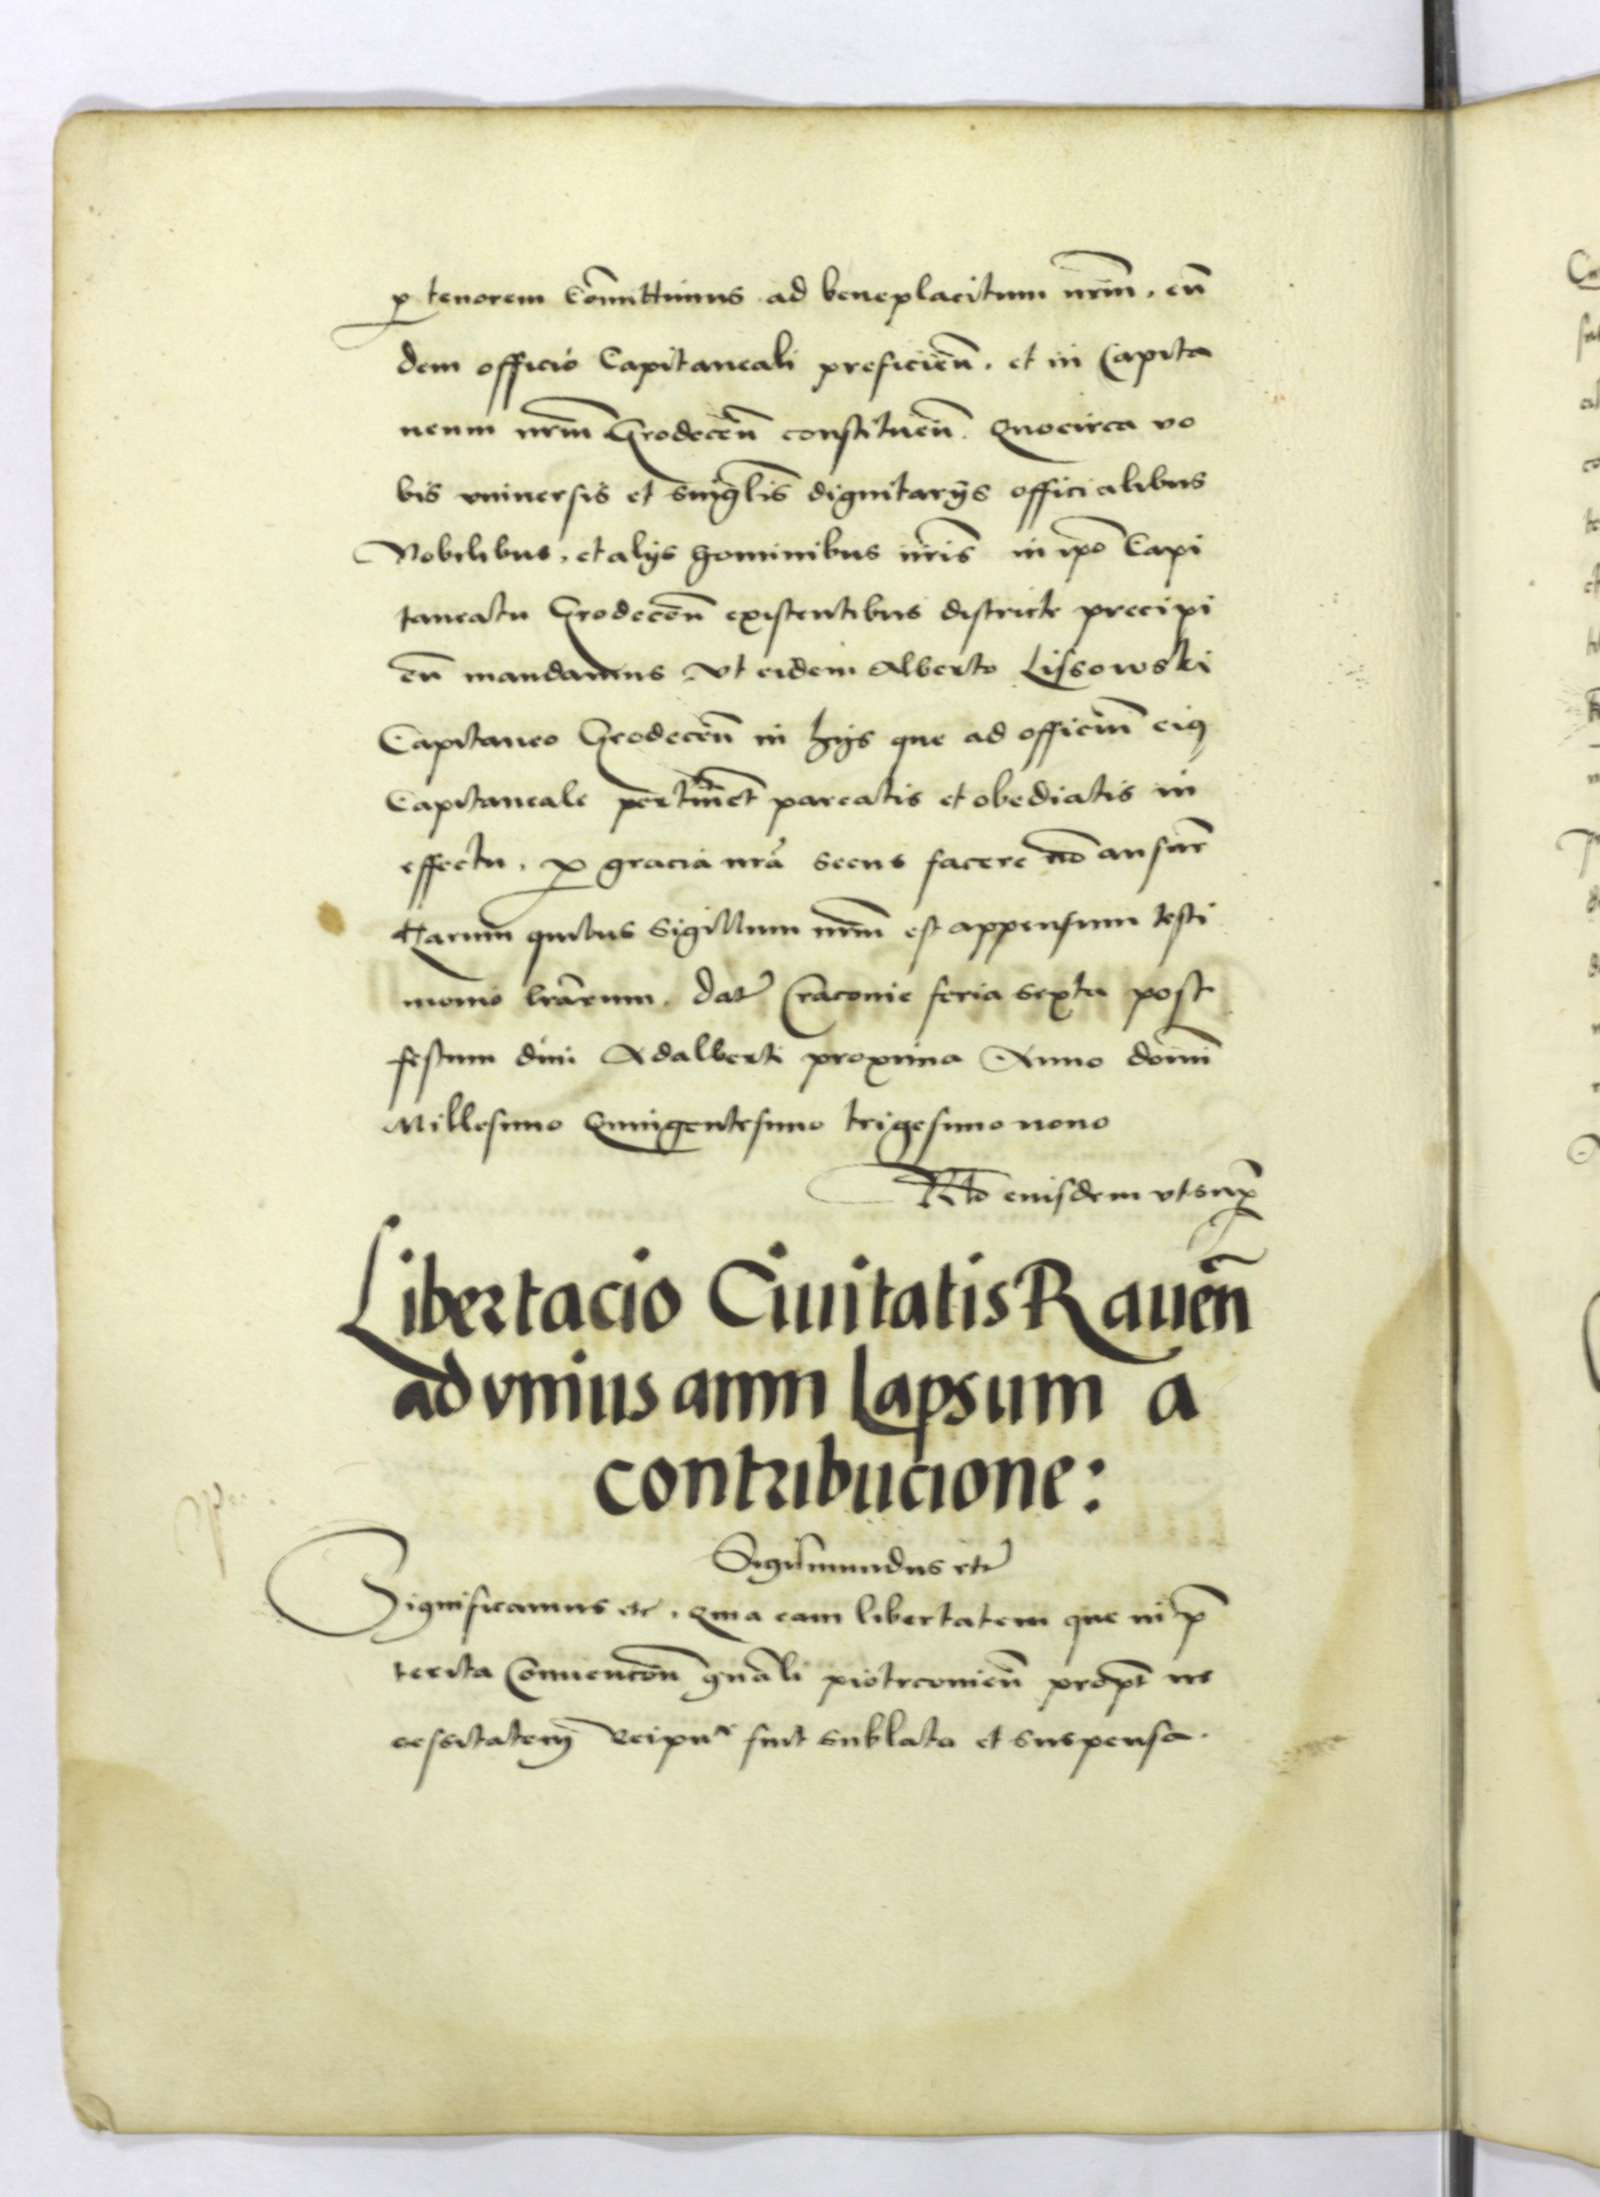 p tenorem Comittimus ad beneplacitum nrm, eū
dem officio Capitaneali preficieñ. et in Capita
neum nrm Grodeceñ constitueñ. Quocirca vo
bis vniuersis et singlis dignitarijs officialibus
Nobilibus, et alijs hominibus nris in ipo Capi
taneatu Grodeceñ existentibus districte precipi
eñ mandamus vt eidem Alberto Lissowski
Capitaneo Grodeceñ in hijs que ad officiū eiq
Capitaneale pertinēt pareatis et obediatis in
effectu, p gracia nrã secus facere nō ansuri
Harum quibus Sigillum nrm est appensum testi
monio lrarum. Dat Cracouie feria sexta post
festum diui Adalberti proxima Anno domi
Millesimo Quingentesimo trigesimo nono
Rlo eiusdem vt sup
Libertacio Ciuitatis Raueñ
ad vnius anni Lapsum a
contribucione:
Sigismundus etc
Significamus etc. Quia eam libertatem que in p
terita Conuencoñ gnali piotrconieñ propt ne
cessitatem Reipu fuit sublata et suspensa.